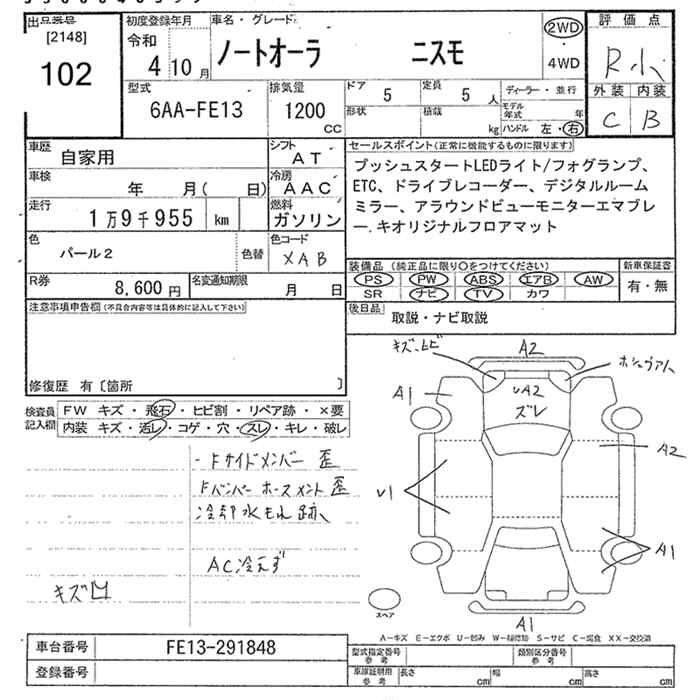 出品番号
[2148]
102
初度登録年月
令和
4 10月
車名・グレード
ノートオーラ ニスモ
2WD
4WD
評価点
R小
外装 内装
C B
型式
6AA-FE13
排気量
1200
CC
ドア 5
定員 5 人
形状
積載
kg
ディーラー・並行
モデル年式 年
ハンドル 左・右
車歴
自家用
シフト
AT
車検
年 月( 日)
冷房
AAC
走行
1万9千955 km
燃料
ガソリン
色
パール2
色替
色コード
XAB
R券
8,600円
名変通知期限
月 日
セールスポイント(正常に機能するものに限ります)
プッシュスタートLEDライト/フォグランプ、
ETC、ドライブレコーダー、デジタルルーム
ミラー、アラウンドビューモニターエマブレ
ー.キオリジナルフロアマット
装備品(純正品に限り○をつけてください)
PS PW ABS エアB AW
SR ナビ TV カワ
新車保証書
有・無
後日品
取説・ナビ取説
注意事項申告欄(不具合内容等は具体的に記入して下さい)
修復歴 有〔箇所 〕
検査員
記入欄
FW キズ・飛石・ヒビ割・リペア跡・×要
内装 キズ・汚レ・コゲ・穴・スレ・キレ・破レ
-Fサイドメンバー 歪
Fバンパー ホースメント 歪
冷却水もれ跡
AC冷えず
キズ凹
A2
A1
UA2
ズレ
A2
U1
A1
A1
スペア
A-キズ E-エクボ U-凹み W-補修跡 S-サビ C-腐食 XX-交換済
車台番号
FE13-291848
登録番号
型式指定番号
参考
類別区分番号
参考
車庫証明用
参考
長さ cm
幅 cm
高さ cm